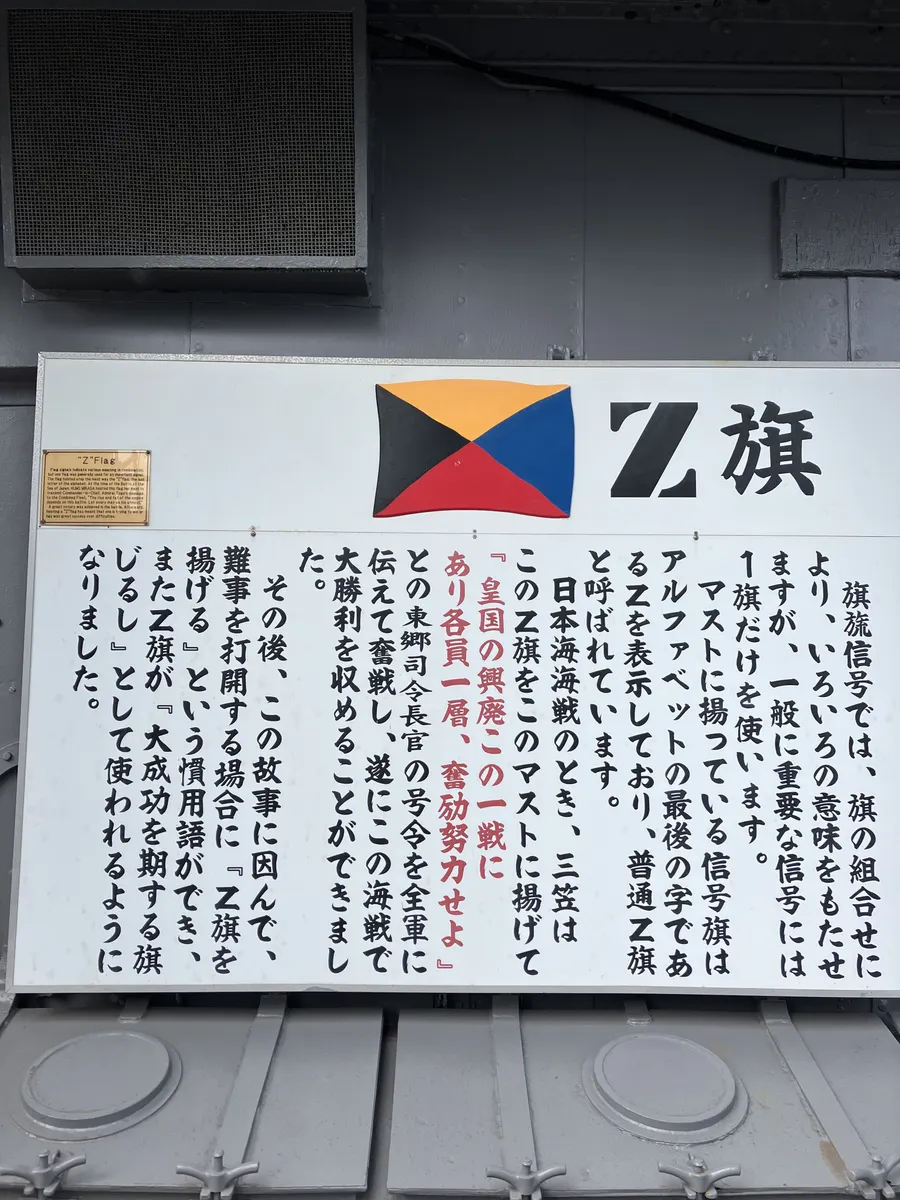 Z旗
旗旒信号では、旗の組合せに
より、いろいろの意味をもたせ
ますが、一般に重要な信号には
1旗だけを使います。
マストに揚っている信号旗は
アルファベットの最後の字であ
るZを表示しており、普通Z旗
と呼ばれています。
日本海海戦のとき、三笠は
このZ旗をこのマストに揚げて
『皇国の興廃この一戦に
あり各員一層、奮励努力せよ』
との東郷司令長官の号令を全軍に
伝えて奮戦し、遂にこの海戦で
大勝利を収めることができまし
た。
その後、この故事に因んで、
難事を打開する場合に『Z旗を
揚げる』という慣用語ができ、
またZ旗が『大成功を期する旗
じるし』として使われるように
なりました。
"Z" Flag